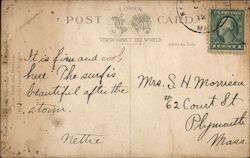 FAMOUS
POST CARD
THROUGHOUT THE WORLD
It is fine and cool
here. The surf is
beautiful after the
storm.
Nettie
Mrs. S. H. Morrison
62 Court St
Plymouth
Mass